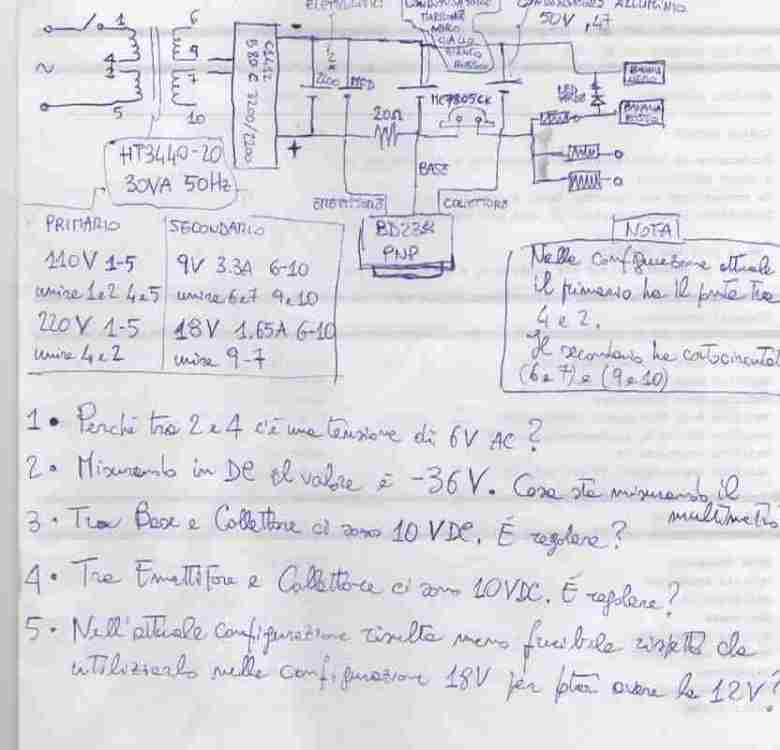 ELETTROLITICI
50V ,47
MARRONE
NERO
GIALLO
BIANCO
ROSSO
1
6
-
4
3
9
7
5
10
~
CS412
B80 C 3200/2200
2200
MFD
MC7805CK
20Ω
LED
VERDE
BANANA
NERO
BANANA
ROSSO
+
HT3440-20
30VA 50Hz
BASE
EMETTITORE
COLLETTORE
BD23
PNP
PRIMARIO
SECONDARIO
110V 1-5
9V 3.3A 6-10
unire 1e2 4e5
unire 6e7 9e10
220V 1-5
18V 1.65A 6-10
unire 4e2
unire 9-7
NOTA
Nella configurazione attuale
il primario ha il ponte tra
4 e 2.
Il secondario ha cortocircuitat
(6 e 7) e (9 e 10)
1• Perché tra 2 e 4 c'é una tensione di 6V AC?
2• Misurando in DC il valore é -36V. Cosa sta misurando il
multimetro
3• Tra Base e Collettore ci sono 10 VDC. É regolare?
4• Tra Emettitore e Collettore ci sono 10VDC. É regolare?
5• Nell'attuale configurazione risulta meno fruibile rispetto che
utilizzarlo nella configurazione 18V per poter avere la 12V?